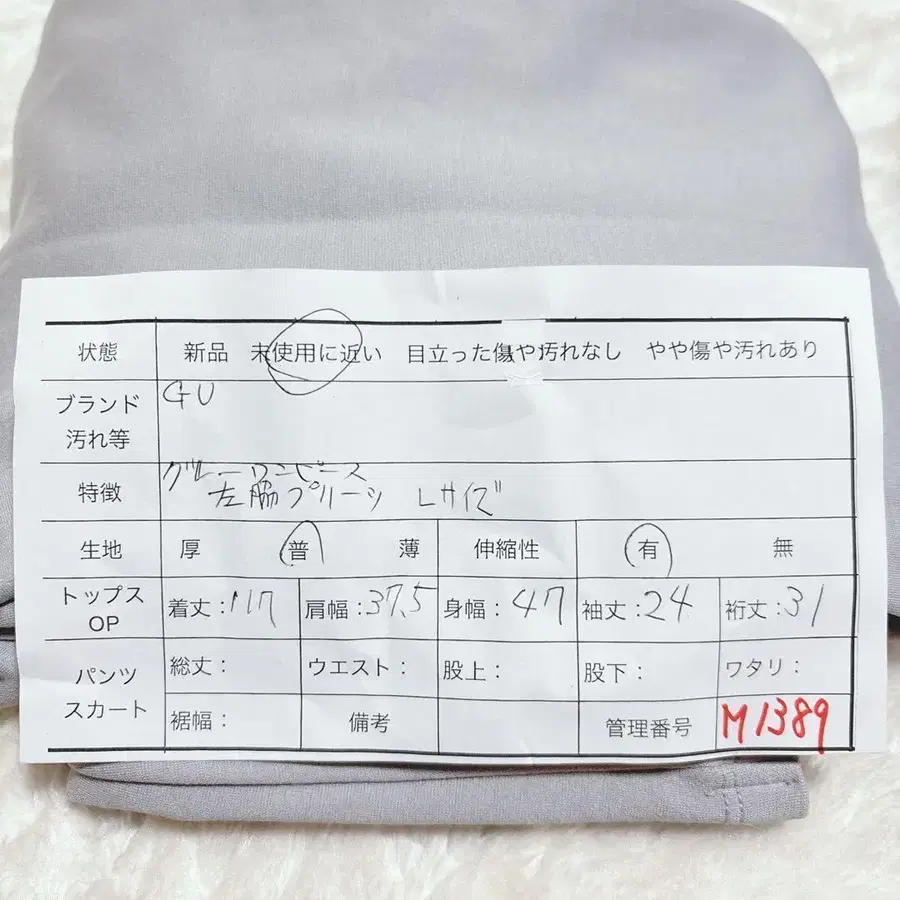 状態 新品 未使用に近い 目立った傷や汚れなし やや傷や汚れあり
ブランド GU
汚れ等
グレーワンピース
特徴 左脇プリーツ Lサイズ
生地 厚 普 薄 伸縮性 有 無
トップス OP 着丈:117 肩幅:37.5 身幅:47 袖丈:24 裄丈:31
パンツ スカート 総丈: ウエスト: 股上: 股下: ワタリ:
裾幅: 備考 管理番号 M1389